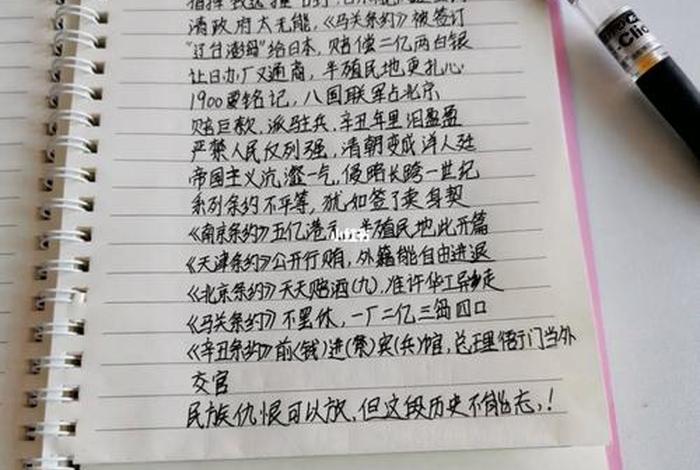 清政府太无能,《马关条约》被签订
"辽台澎"给日本,赔偿二亿两白银
让日办厂又通商,半殖民地更扎心
1900要铭记,八国联军占北京
赔巨款,派驻兵,辛丑年里泪盈盈
严禁人民反列强,清朝变成洋人廷
帝国主义沆瀣一气,侵略长跨一世纪
系列条约不平等,犹如签了卖身契
《南京条约》五亿港 半殖民地此开篇
《天津条约》公开行贿,外籍能自由进退
《北京条约》天天赔酒(九),准许华工异走
《马关条约》不罢休,一厂二亿三岛四口
《辛丑条约》前(钱)进(禁)宾(兵)馆,总理衙门当外
交官
民族仇恨可以放,但这段历史不能忘,!
小红书
Clic